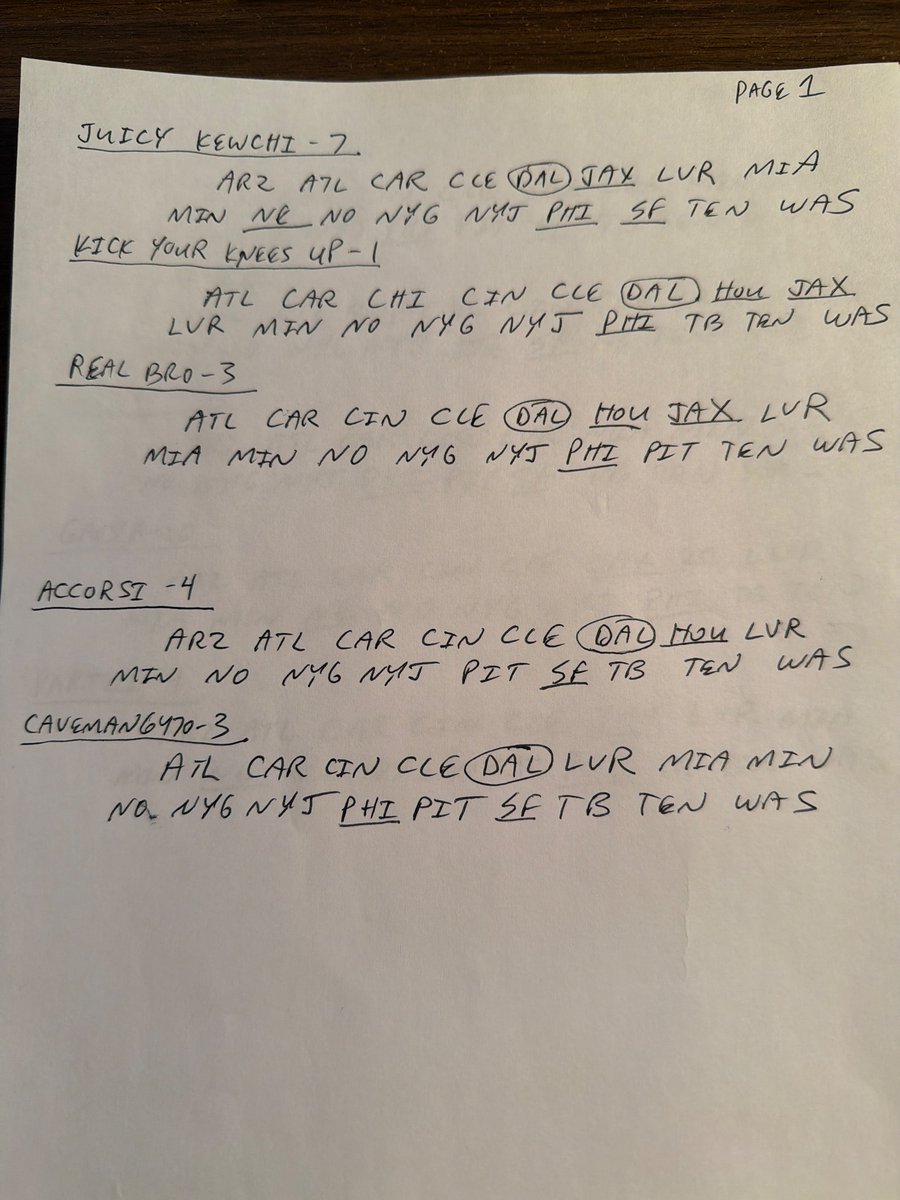 PAGE 1
JUICY KEWCHI - 7
ARZ ATL CAR CLE DAL JAX LVR MIA
MIN NE NO NYG NYJ PHI SF TEN WAS
KICK YOUR KNEES UP - 1
ATL CAR CHI CIN CLE DAL HOU JAX
LVR MIN NO NYG NYJ PHI TB TEN WAS
REAL BRO - 3
ATL CAR CIN CLE DAL HOU JAX LVR
MIA MIN NO NYG NYJ PHI PIT TEN WAS
ACCORSI - 4
ARZ ATL CAR CIN CLE DAL HOU LVR
MIN NO NYG NYJ PIT SF TB TEN WAS
CAVEMAN6470 - 3
ATL CAR CIN CLE DAL LVR MIA MIN
NO NYG NYJ PHI PIT SF TB TEN WAS